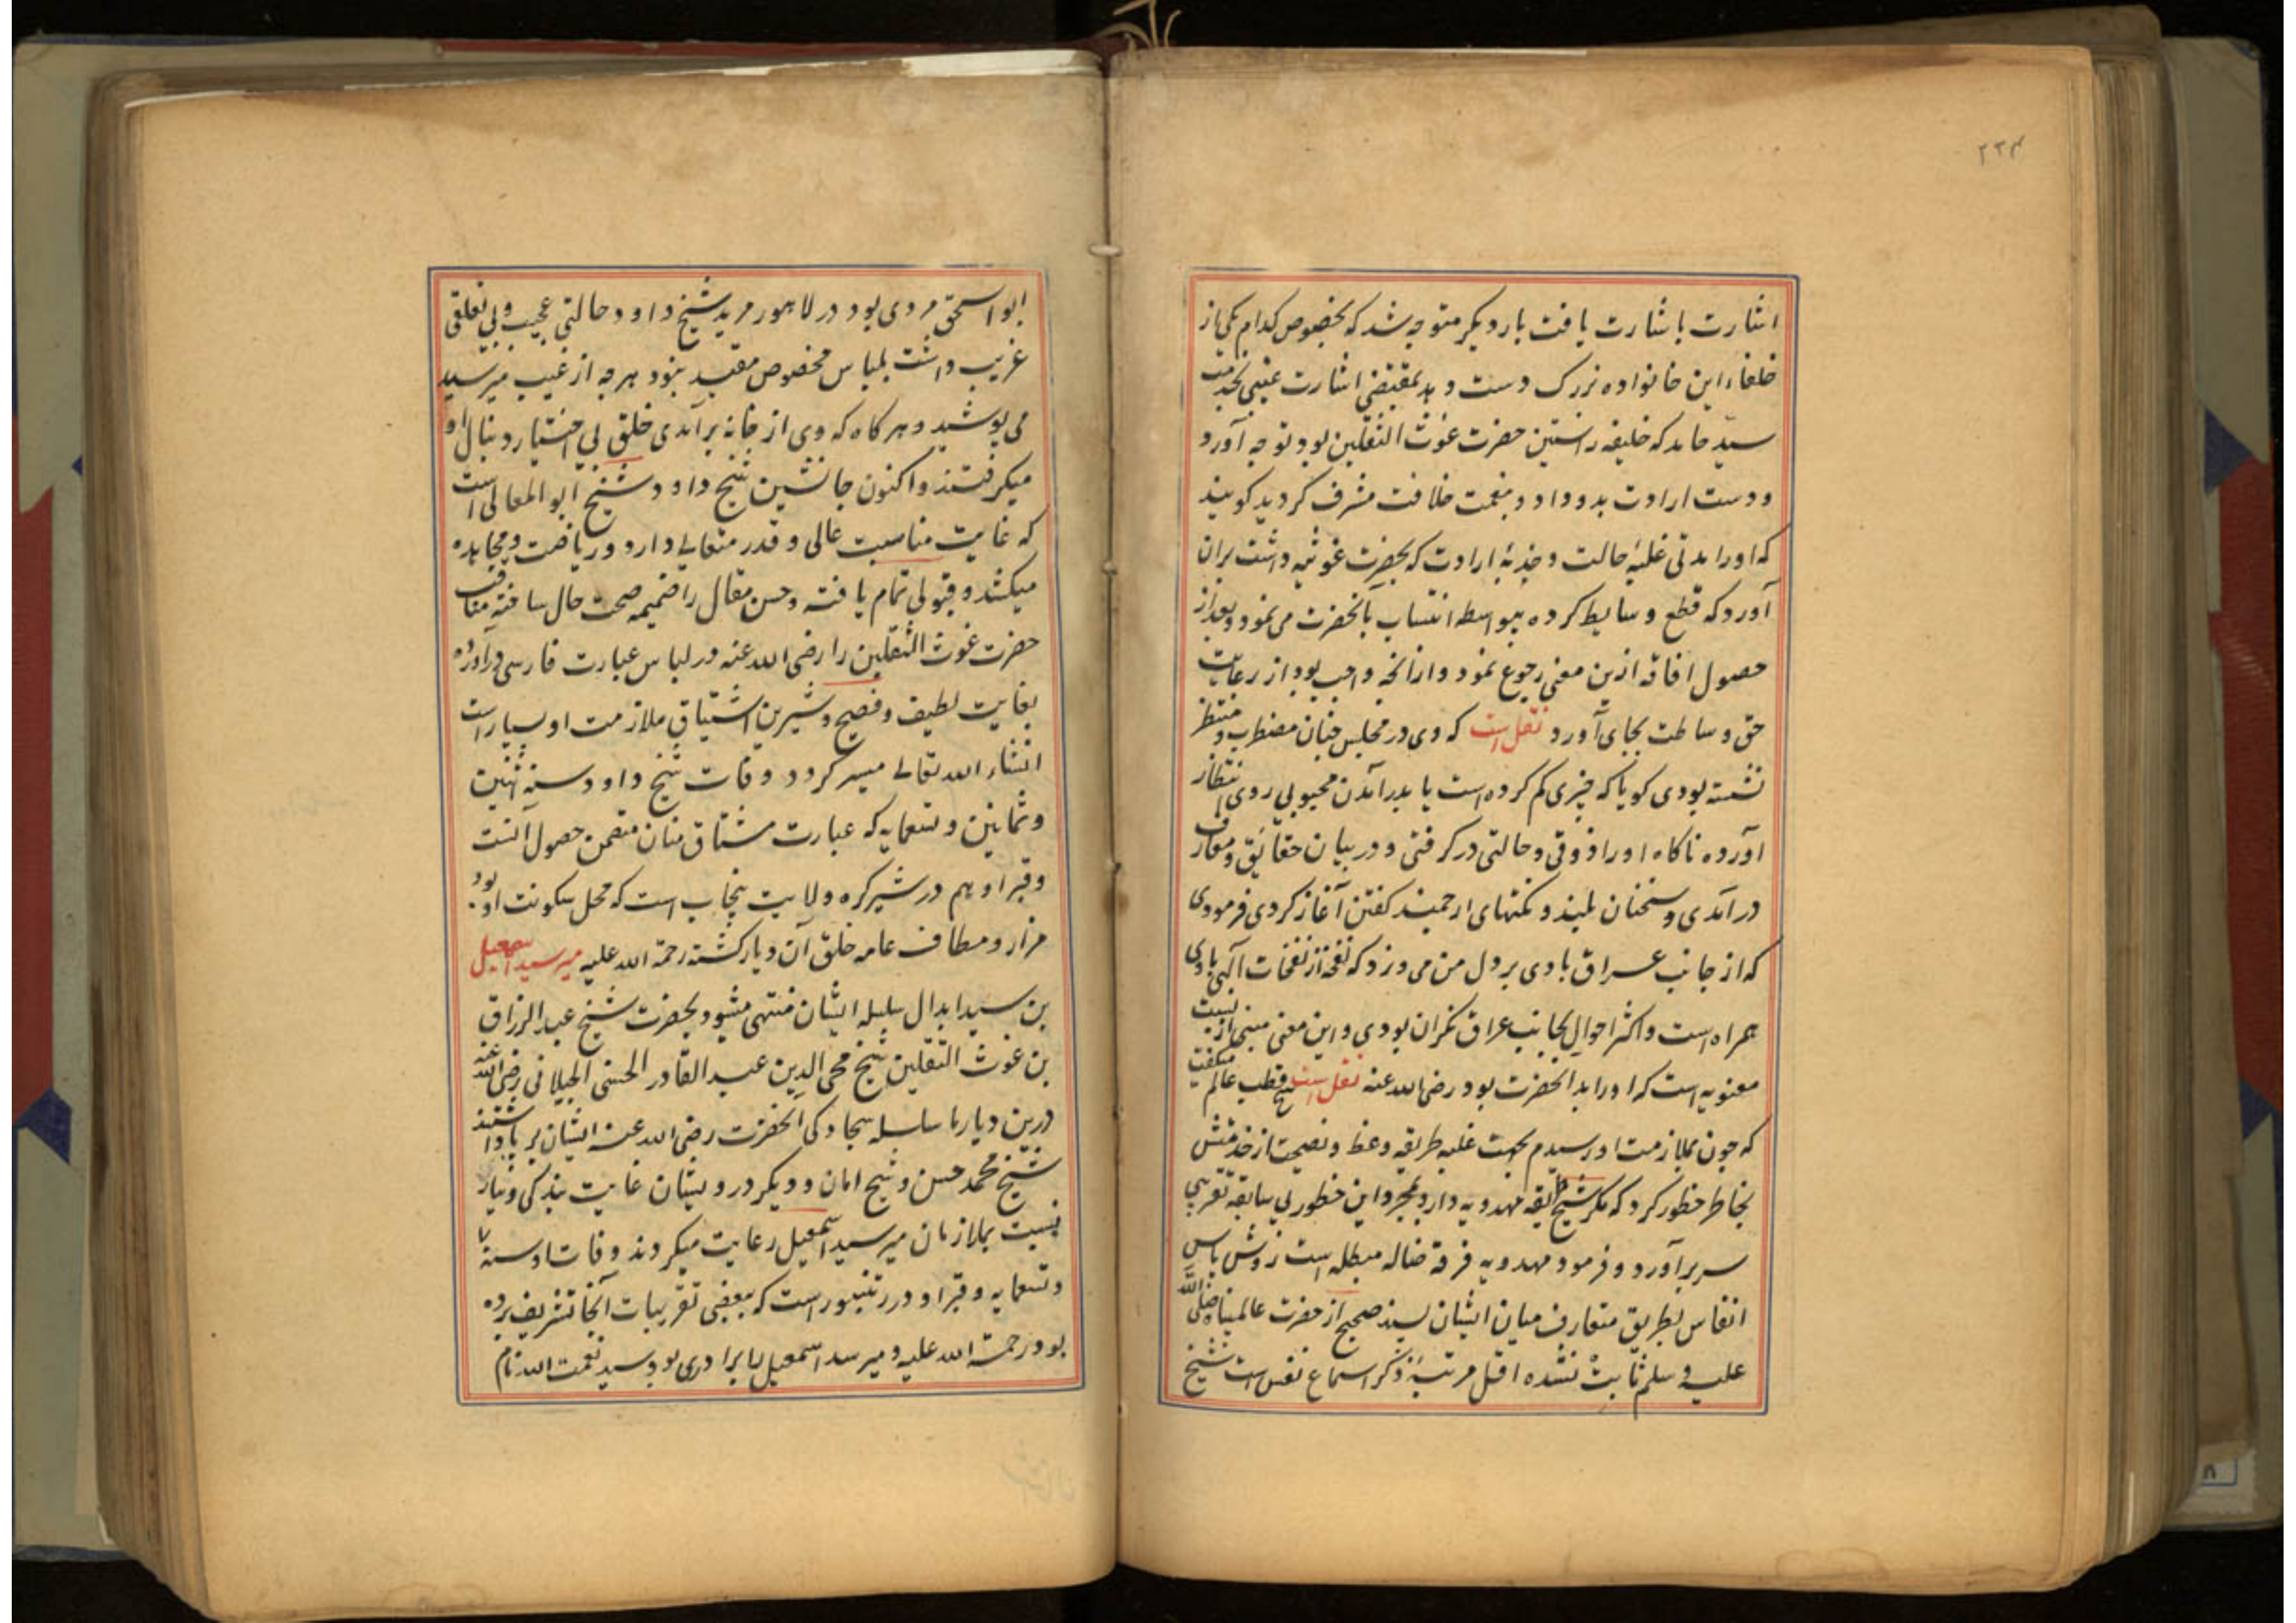 ۲۳۴
اشارت باشارت یافت بار دیگر متوجه شد که بخصوص کدام یکی از
خلفاء این خانواده بزرک دست دهد بمقتضی اشارت غیبی بخدمت
سید حامد که خلیفه راستین حضرت غوث الثقلین بود توجه آورد
و دست ارادت بدو داد و بنعمت خلافت مشرف کردید کویند
که او را مدتی غلبه حالت و جذبه ارادت که بحضرت غوثیه داشت بران
آورد که قطع وسایط کرده بیواسطه انتساب بآنحضرت می نمود و بعد از
حصول افاقه ازین معنی رجوع نمود و از انچه واجب بود از رعایت
حق وساطت بجای آورد نقل است که وی در مجلس چنان مضطرب و منتظر
نشسته بودی کویا که چیزی کم کرده است یا بدر آمدن محبوبی روی انتظار
آورده ناکاه او را ذوقی و حالتی در کرفتی و در بیان حقائق و معارف
در آمدی و سخنان بلند و نکتهای ارجمند کفتن آغاز کردی فرمودی
که از جانب عراق بادی بر دل من می وزد که نفخه از نفخات الهی با وی
همراه است و اکثر احوال بجانب عراق نکران بودی و این معنی مبنی از نسبت
معنویه است که او را بدانحضرت بود رضی الله عنه نقل است شیخ قطب عالم میکفت
که چون بملازمت او رسیدم بجهت غلبه طریقه وعظ و نصیحت از خدمتش
بخاطر خطور کرد که مکر شیخ طریقه مهدویه دارد بمجرد این خطور بی سابقه تقریبی
سر بر آورد و فرمود مهدویه فرقه ضاله مبطله است روش پاس
انفاس بطریق متعارف میان ایشان بسند صحیح از حضرت عالمپناه صلی الله
علیه و سلم ثابت نشده اقل مرتبه ذکر اسماع نفس است شیخ
ابو اسحق مردی بود در لاهور مرید شیخ داود حالتی عجیب و بی تعلقی
غریب داشت بلباس مخصوص مقید نبود هرچه از غیب میرسید
می پوشید و هرکاه که وی از خانه برآمدی خلق بی اختیار دنبال او
میکرفتند و اکنون جانشین شیخ داود شیخ ابو المعالی است
که غایت مناسبت عالی و قدر متعالی دارد و ریاضت و مجاهده
میکشد و قبولی تمام یافته و حسن مقال را ضمیمه صحت حال ساخته مناقب
حضرت غوث الثقلین را رضی الله عنه در لباس عبارت فارسی در آورده
بغایت لطیف و فصیح و شیرین اشتیاق ملازمت او بسیار است
انشاء الله تعالی میسر کردد وفات شیخ داود سنه اثنین
و ثمانین و تسعمایه که عبارت مشتاق منان متضمن حصول آنست
و قبر او هم در شیرکره ولایت پنجاب است که محل سکونت او بود
مزار و مطاف عامه خلق آن دیار کشته رحمة الله علیه میر سید اسمعیل
بن سید ابدال سلسله ایشان منتهی میشود بحضرت شیخ عبد الرزاق
بن غوث الثقلین شیخ محی الدین عبد القادر الحسنی الجیلانی رضی الله عنه
درین دیارها سلسله سجادکی آنحضرت رضی الله عنه ایشان بر پا داشتند
شیخ محمد حسن و شیخ امان و دیکر درویشان غایت بندکی و نیاز
نسبت بملازمان میر سید اسمعیل رعایت میکردند وفات او سنه
و تسعمایه و قبر او در رنتنبور است که ببعضی تقریبات آنجا تشریف برده
بود رحمة الله علیه و میر سید اسمعیل را برادری بود سید نعمت الله نام